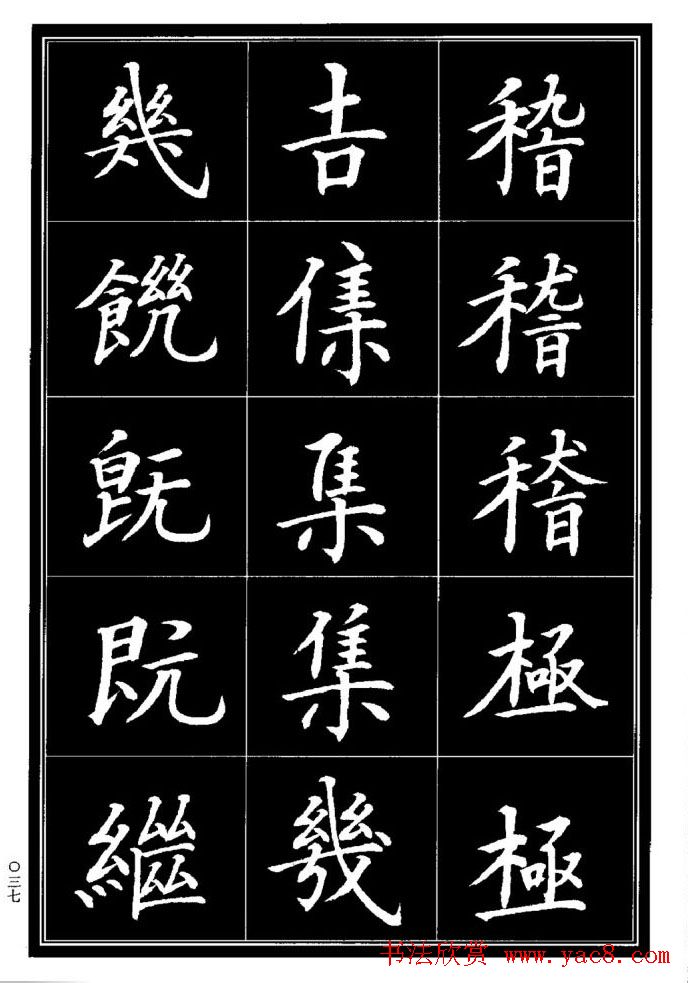 稽稽稽極極
吉集集集幾
幾饑既既繼
〇三七
书法欣赏 www.yac8.com